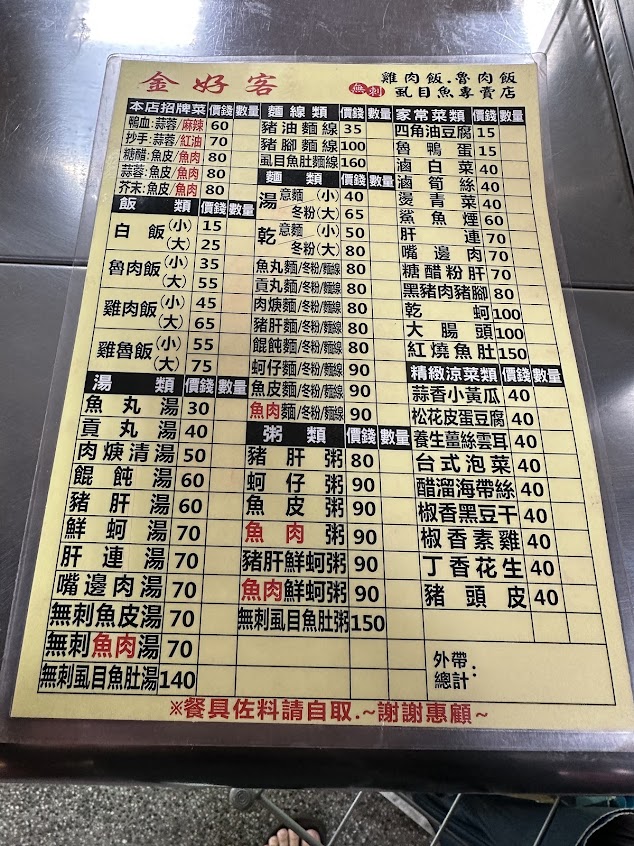 金好客
無刺
雞肉飯.魯肉飯
虱目魚專賣店
本店招牌菜 價錢 數量
鴨血:蒜蓉/麻辣 60
抄手:蒜蓉/紅油 70
糖醋:魚皮/魚肉 80
蒜蓉:魚皮/魚肉 80
芥末:魚皮/魚肉 80
飯類 價錢 數量
白飯(小) 15
(大) 25
魯肉飯(小) 35
(大) 55
雞肉飯(小) 45
(大) 65
雞魯飯(小) 55
(大) 75
湯類 價錢 數量
魚丸湯 30
貢丸湯 40
肉焿清湯 50
餛飩湯 60
豬肝湯 60
鮮蚵湯 70
肝連湯 70
嘴邊肉湯 70
無刺魚皮湯 70
無刺魚肉湯 70
無刺虱目魚肚湯 140
麵線類 價錢 數量
豬油麵線 35
豬腳麵線 100
虱目魚肚麵線 160
麵類 價錢 數量
湯 意麵(小) 40
冬粉(大) 65
乾 意麵(小) 50
冬粉(大) 80
魚丸麵/冬粉/麵線 80
貢丸麵/冬粉/麵線 80
肉焿麵/冬粉/麵線 80
豬肝麵/冬粉/麵線 80
餛飩麵/冬粉/麵線 80
蚵仔麵/冬粉/麵線 90
魚皮麵/冬粉/麵線 90
魚肉麵/冬粉/麵線 90
粥類 價錢 數量
豬肝粥 80
蚵仔粥 90
魚皮粥 90
魚肉粥 90
豬肝鮮蚵粥 90
魚肉鮮蚵粥 90
無刺虱目魚肚粥 150
家常菜類 價錢 數量
四角油豆腐 15
魯鴨蛋 15
滷白菜 40
滷筍絲 40
燙青菜 40
鯊魚煙 60
肝連 70
嘴邊肉 70
糖醋粉肝 70
黑豬肉豬腳 80
乾蚵 100
大腸頭 100
紅燒魚肚 150
精緻涼菜類 價錢 數量
蒜香小黃瓜 40
松花皮蛋豆腐 40
養生薑絲雲耳 40
台式泡菜 40
醋溜海帶絲 40
椒香黑豆干 40
椒香素雞 40
丁香花生 40
豬頭皮 40
外帶
總計:
※餐具佐料請自取.~謝謝惠顧~